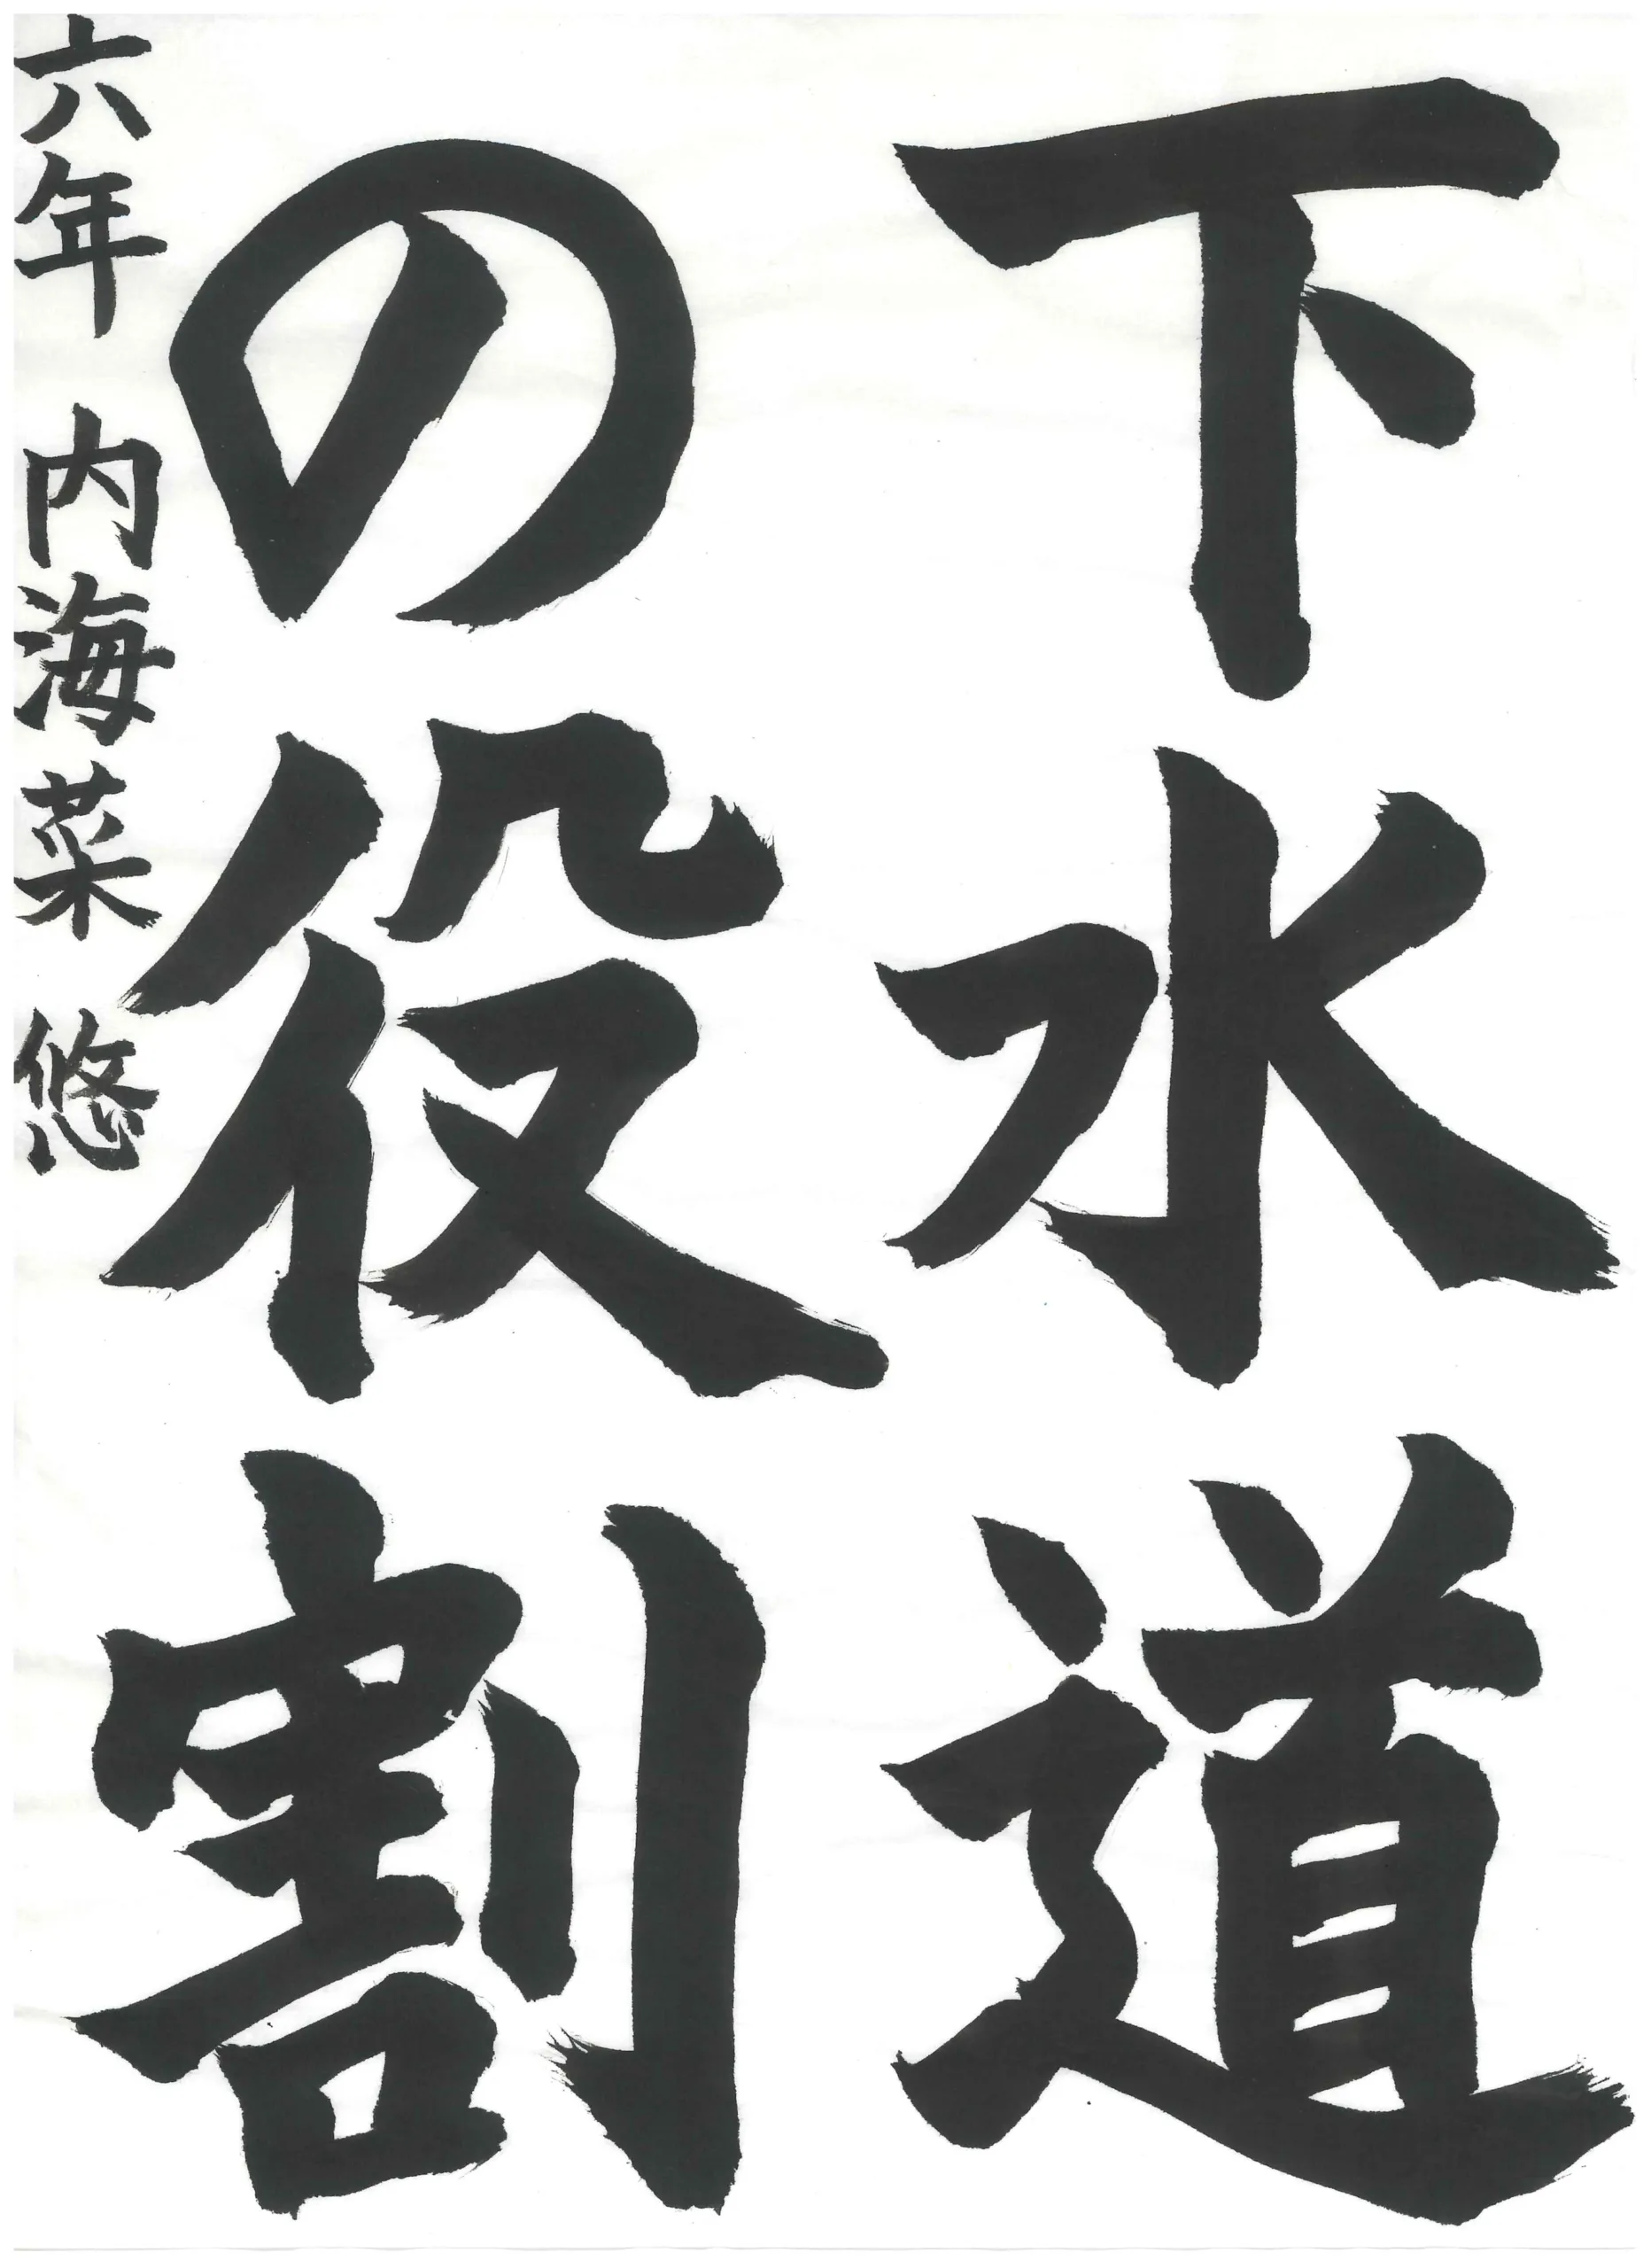 下水道
の役割
六年 内海菜 悠